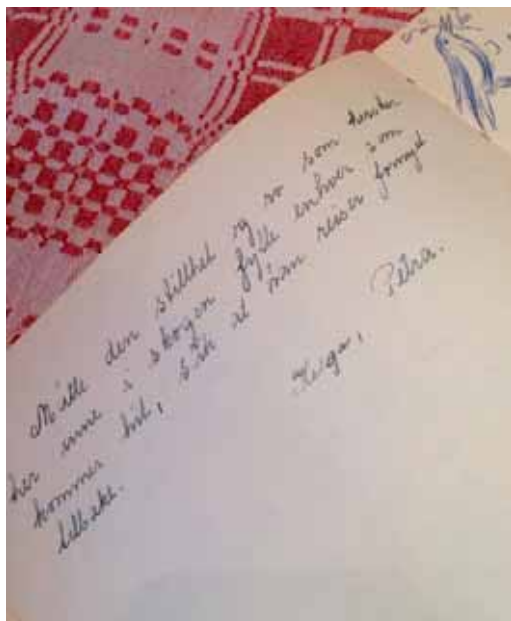 Måtte den stillhet og ro som hersker
her inne i skogen fylle enhver som
kommer hit, slik at man reiser fornyet
tilbake.
Helga, Petra.